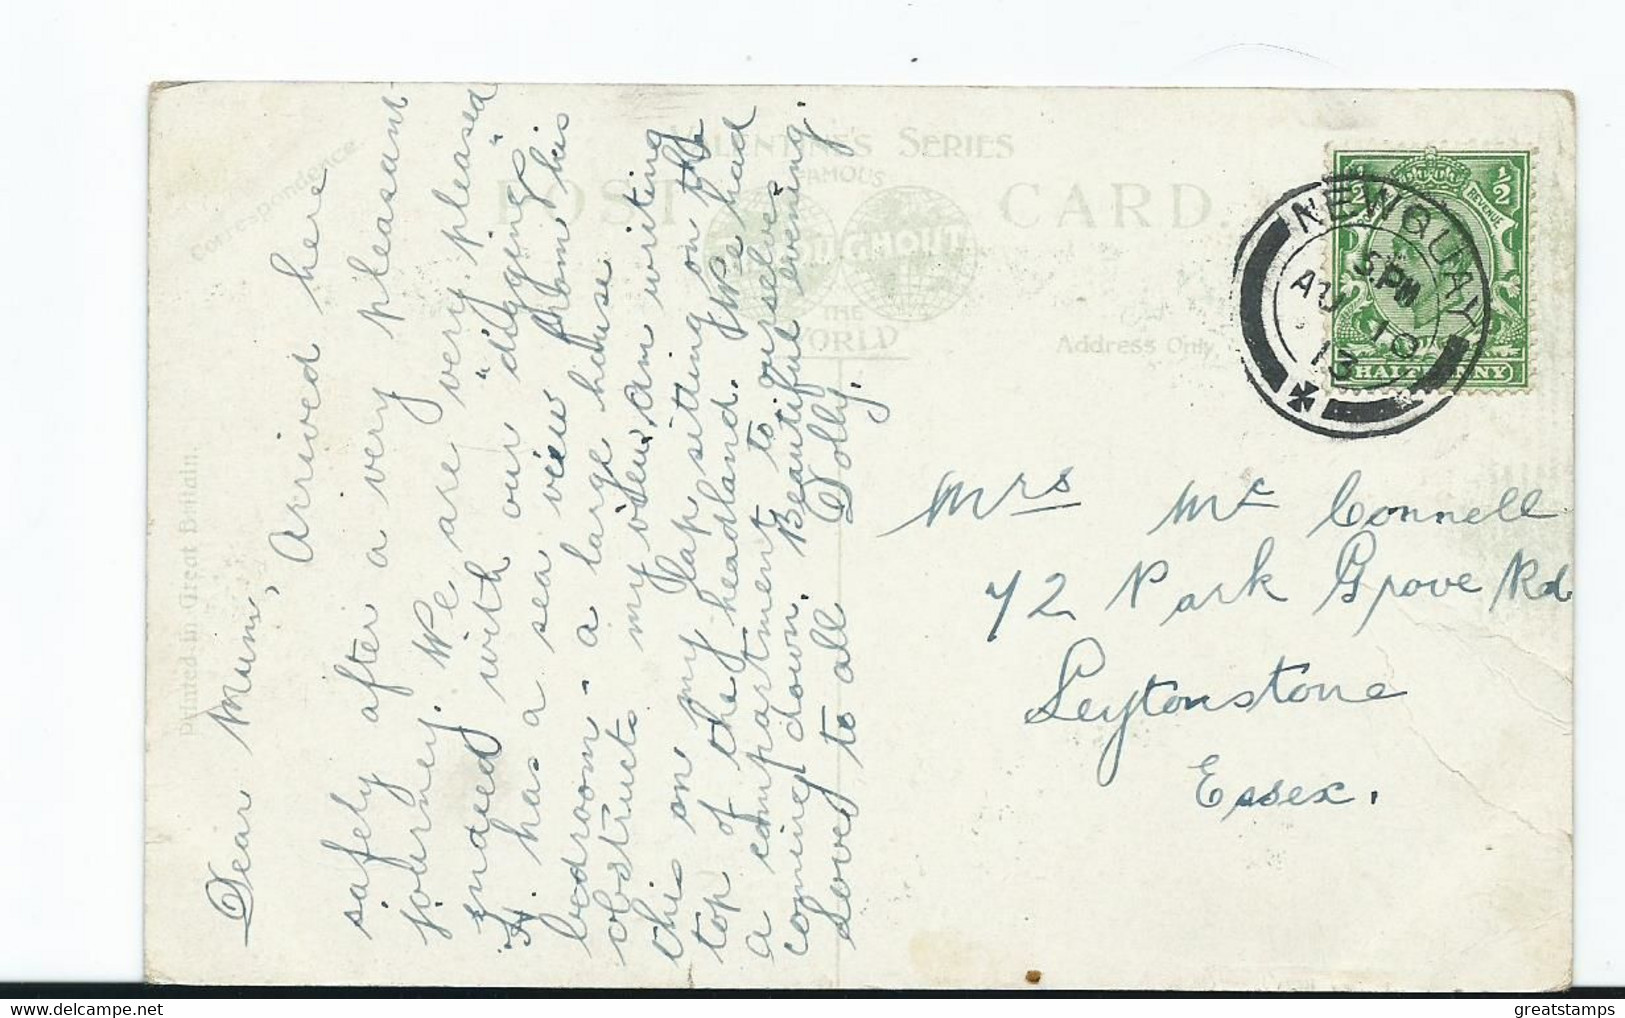 Correspondence.
VALENTINE'S SERIES
FAMOUS
THROUGHOUT
THE
WORLD
POST CARD
Address Only.
Printed in Great Britain.
½ ½
REVENUE
HALFPENNY
NEWQUAY
5 PM
AU 10
13
Dear Mum,
Arrived here
safely after a very pleasant
journey. We are very pleased
indeed with our "digging"s"
It has a sea view from this
bedroom - a large house
obstructs my view, am writing
this on my lap sitting on the
top of the headland. We had
a compartment to ourselves
coming down. Beautiful evening.
Love to all Dolly.
Mrs Mc Connell
72 Park Grove Rd
Leytonstone
Essex.
greatstamps